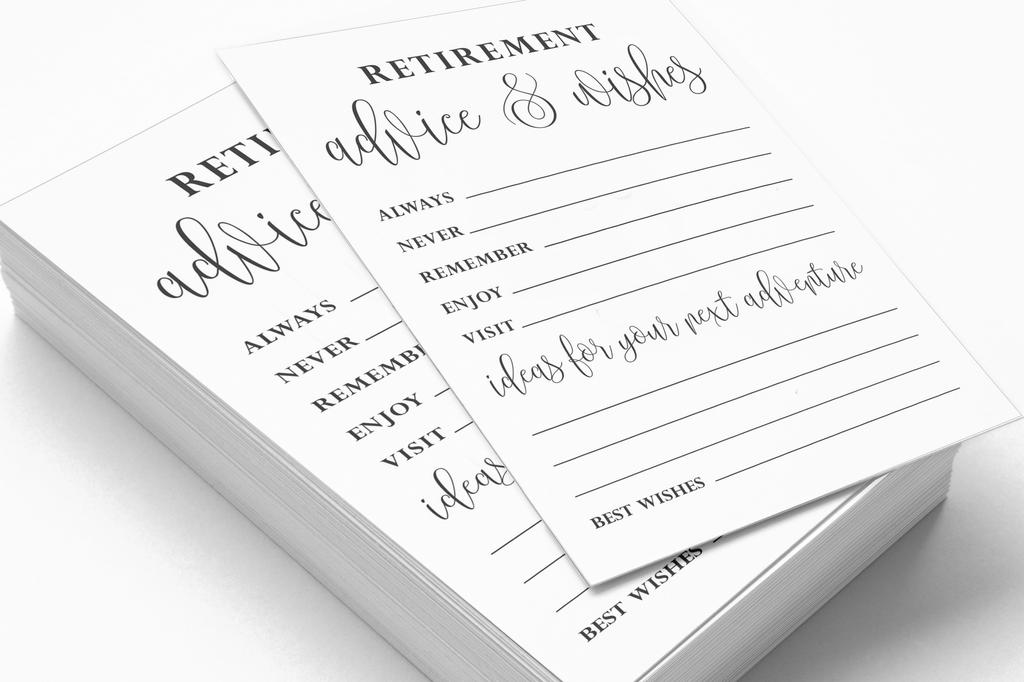 RETIREMENT
advice & wishes
ALWAYS
NEVER
REMEMBER
ENJOY
VISIT
ideas for your next adventure
BEST WISHES
RETI
advice
ALWAYS
NEVER
REMEMB
ENJOY
VISIT
ideas
BEST WISHES